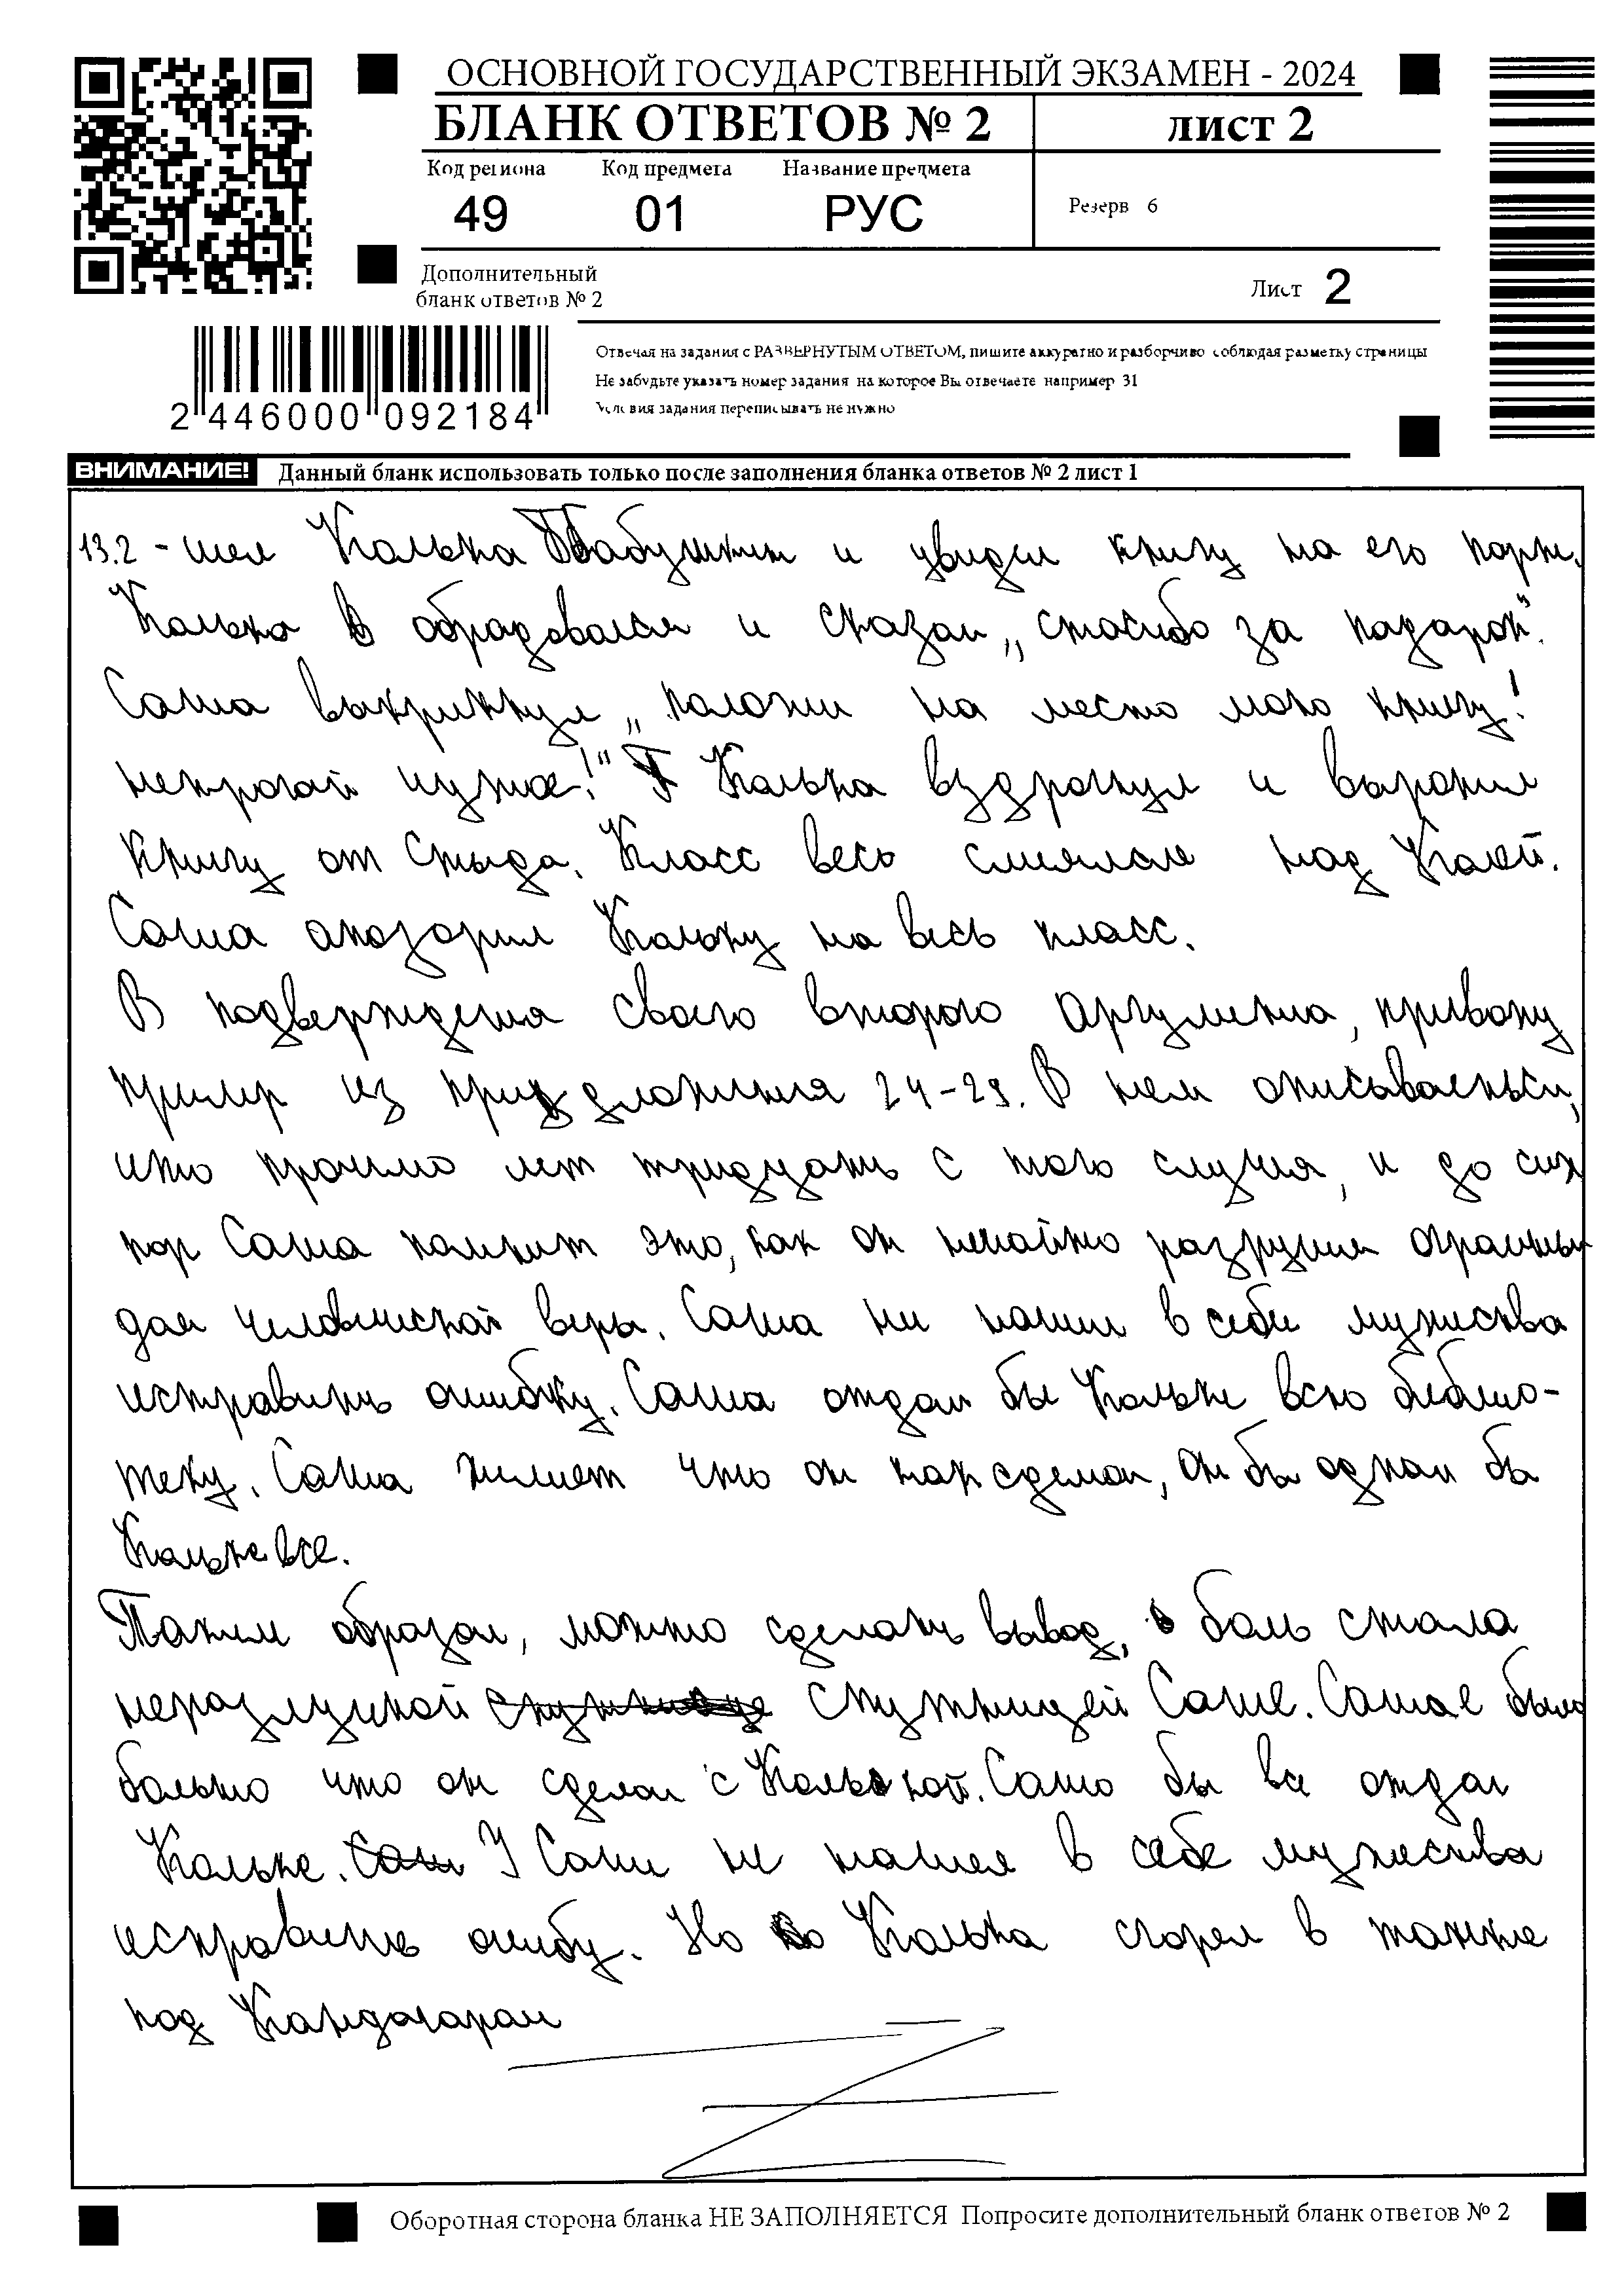 ОСНОВНОЙ ГОСУДАРСТВЕННЫЙ ЭКЗАМЕН - 2024
БЛАНК ОТВЕТОВ № 2 лист 2
Код региона Код предмета Название предмета
49 01 РУС
Резерв 6
Дополнительный
бланк ответов № 2
Лист 2
2 446000 092184
Отвечая на задания с РАЗВЕРНУТЫМ ОТВЕТОМ, пишите аккуратно и разборчиво соблюдая разметку страницы
Не забудьте указать номер задания на которое Вы отвечаете например 31
Условия задания переписывать не нужно
ВНИМАНИЕ! Данный бланк использовать только после заполнения бланка ответов № 2 лист 1
13.2 - шел Колька Бабушкин и увидел книгу на его парте.
Колька обрадовался и сказал „спасибо за падарок".
Саша выкрикнул „полоти на место мою книгу!
нетрогай чужое!" Колька вздрогнул и выронил
книгу от стыда. Класс весь смеялся над Колей.
Саша апозорил Кольку на весь класс.
В подверждения своего второго аргумента, привожу
пример из придложения 24-29. В нем описываеться,
что прошло лет тридцать с того случия, и до сих
пор Саша помнит это, как он нечайно разрушил
дая человической веры. Саша ни нашел в себе мужества
исправить ошибку. Саша отдал бы Кольке всю библио-
теку. Саша жилеет что он так сделал, он бы отдал бы
Кольке все.
Таким образом, можно сделать вывод, боль стала
неразлучной спутницей Саше. Саше было
больно что он сделал с Колькой. Саша бы все отдал
Кольке. И Саши не нашел в себе мужества
исправить ошибу. Но Колька сгорел в танке
под Кандагаром
Оборотная сторона бланка НЕ ЗАПОЛНЯЕТСЯ Попросите дополнительный бланк ответов № 2